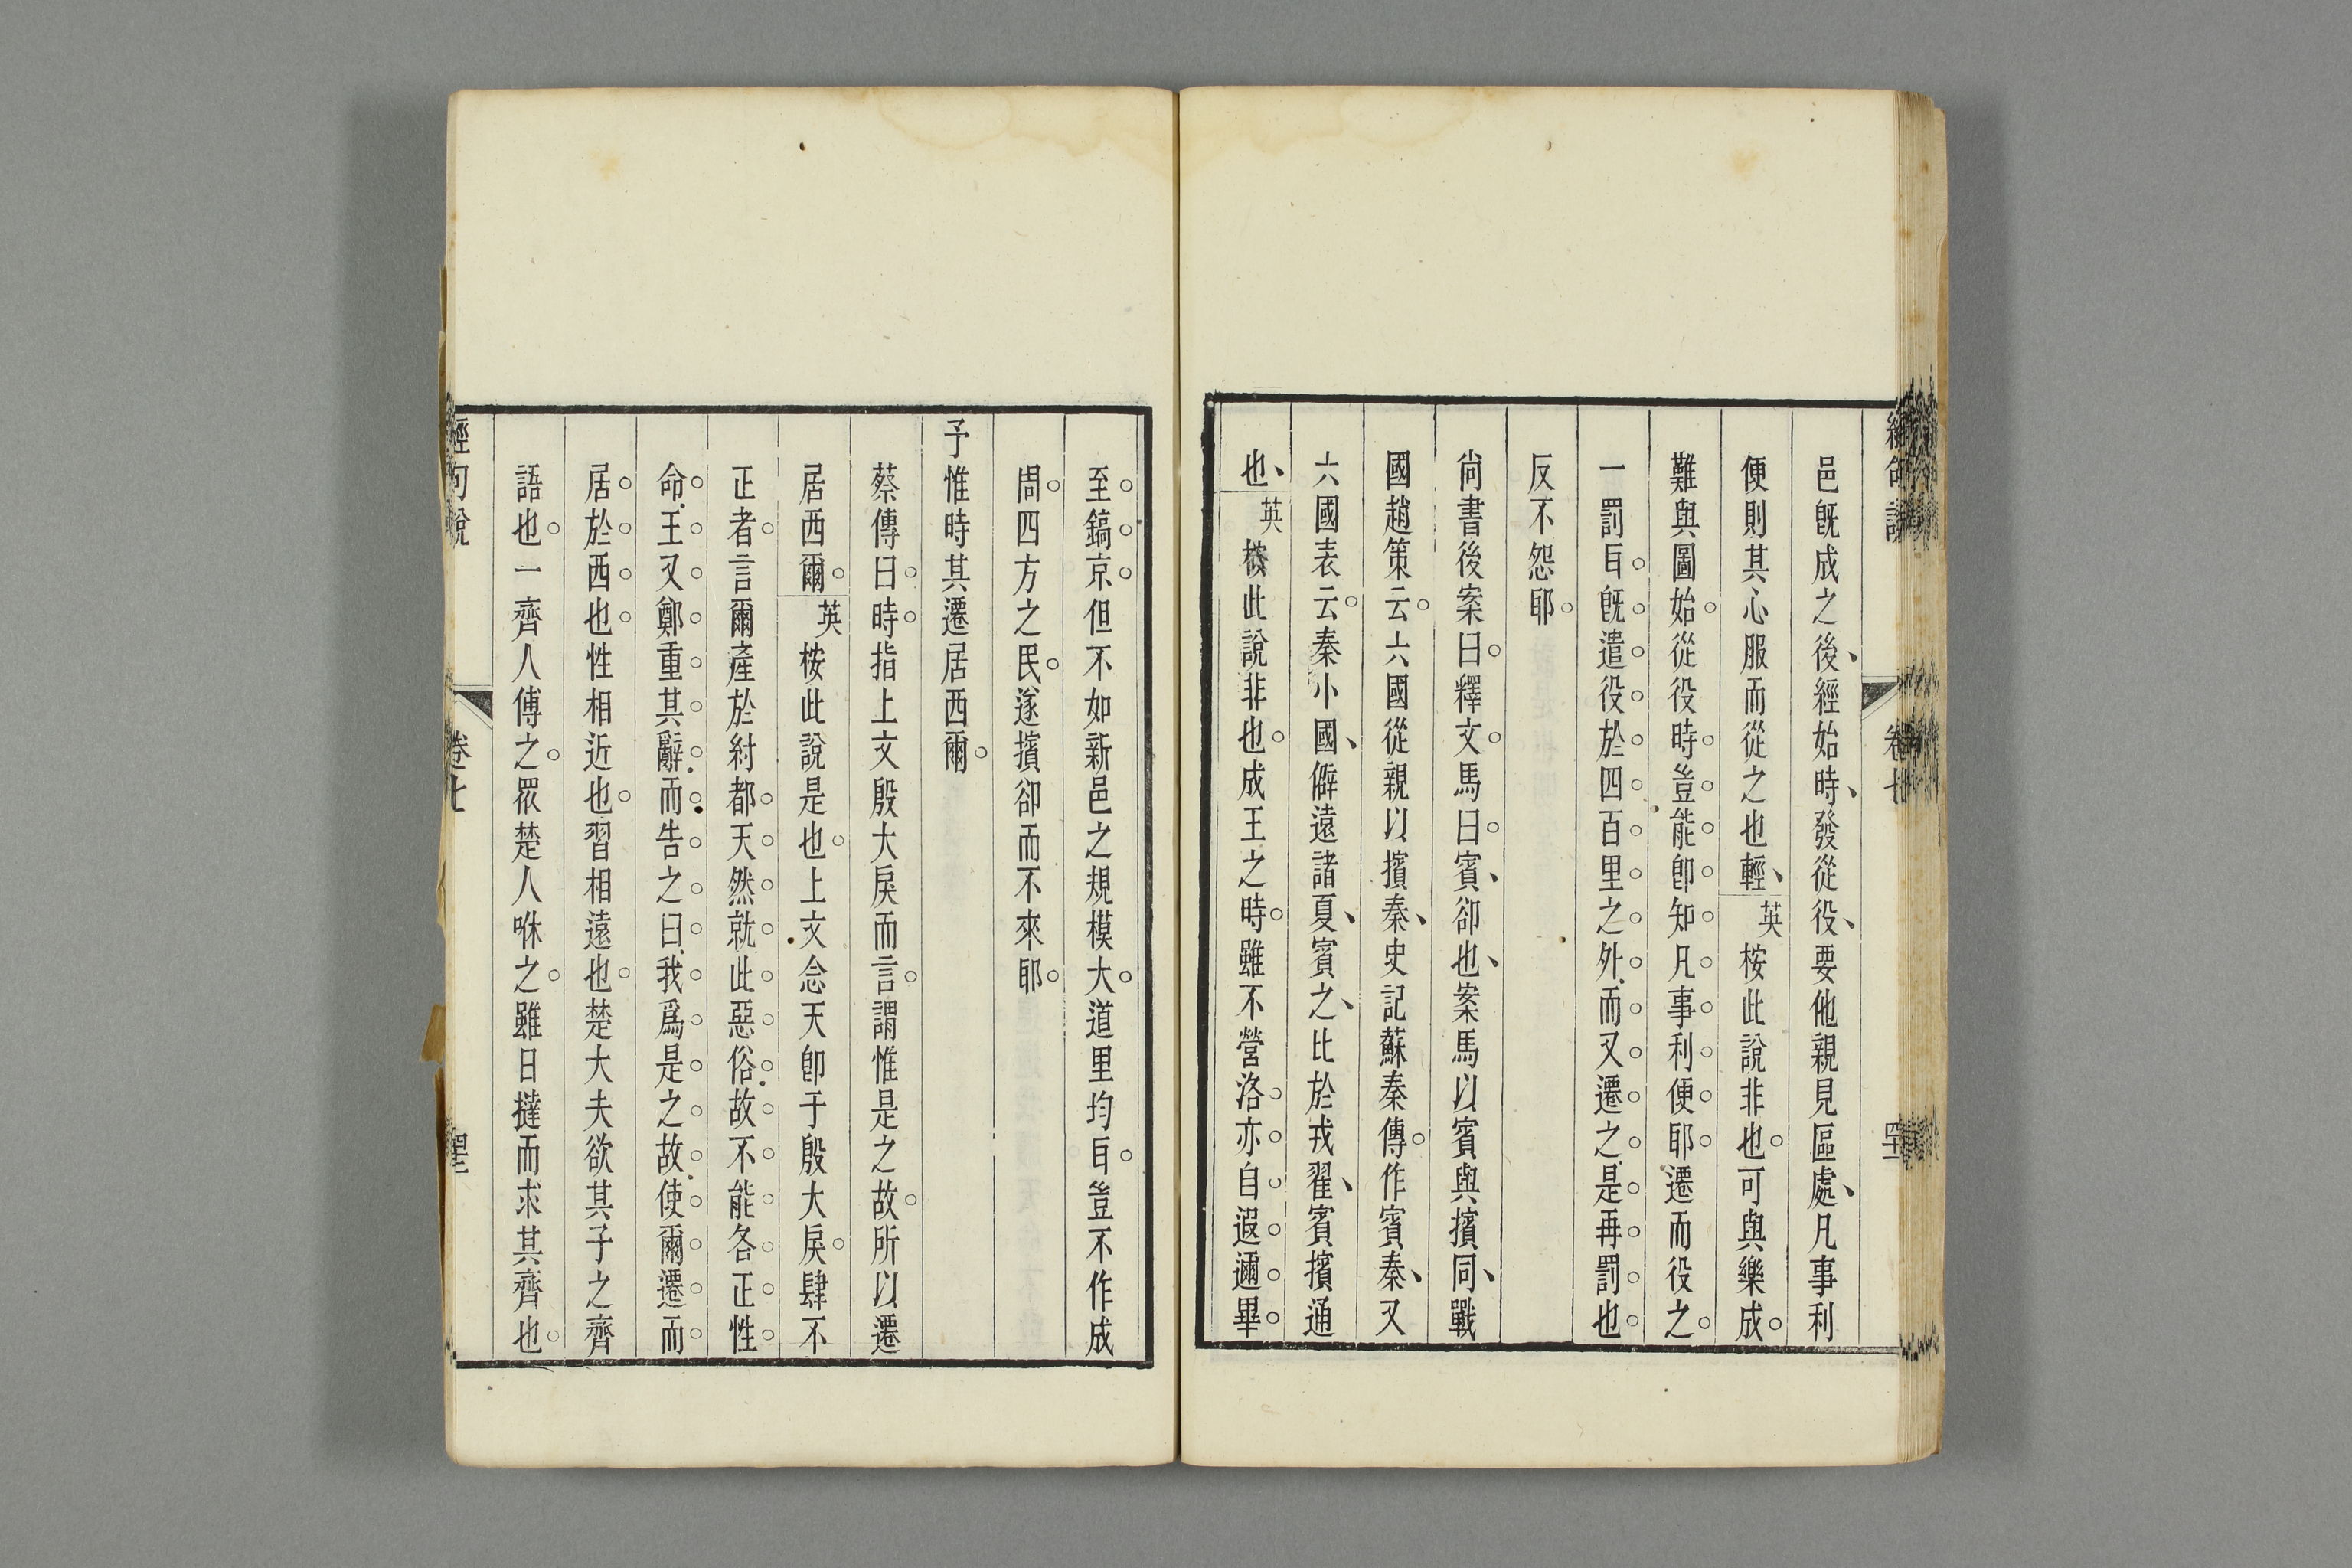 邑旣成之後、經始時、發從役、要他親見區處、凡事利
便則其心服而從之也輕、英桉此說非也○可與樂成○
難與圖始○從役時○豈○能○卽○知○凡○事○利○便○耶○遷而役之○
一罰㠯○旣○遣○役○於○四○百○里○之○外○而○又○遷○之○是○再○罰○也○
反不怨耶○
尙書後案曰○釋文○馬曰○賓、卻也、案馬以賓與擯同、戰
國趙策云○六國從親以擯秦、史記蘇秦傳○作賓秦、又
六國表云○秦小國、僻遠諸夏、賓之、比於戎翟、賓擯通
也、英桉此說非也○成王之時○雖不營洛○亦○自○遐○邇○畢○
至○鎬○京○但不如新邑之規模大○道里均㠯○豈不作成
周○四方之民○遂擯卻而不來耶○
予惟時其遷居西爾○
蔡傳曰○時○指上文殷大戾而言○謂惟是之故○所以遷
居西爾○英桉此說是也○上文念天卽于殷大戾○肆不
正者○言爾產於紂都○天○然○就○此○惡○俗○故○不○能○各○正○性○
命○王○又○鄭○重○其○辭○而○告○之○曰○我○爲○是○之○故○使○爾○遷○而○
居○於○西○也○性相近也○習相遠也○楚大夫欲其子之齊
語也○一齊人傅之○眾楚人咻之○雖日撻而求其齊也○
經句說
卷七